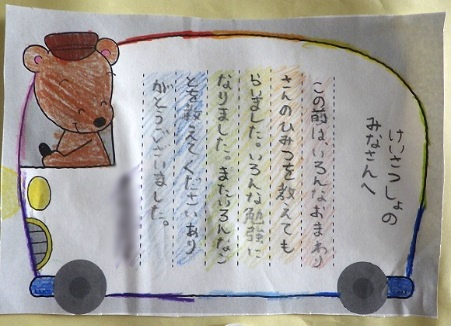 けいさつしょの
みなさんへ
この前は、いろんなおまわり
さんのひみつを教えても
らいました。いろんな勉強に
なりました。またいろんなこ
とを教えてくださいあり
がとうございました。